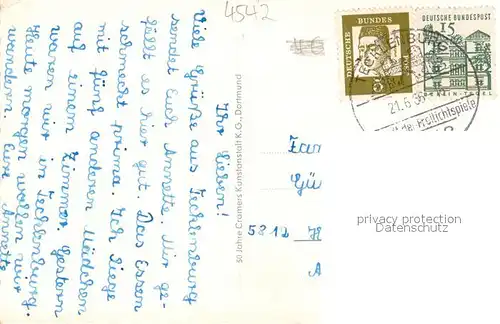 4542
Ihr Lieben!
Viele Grüße aus Tecklenburg
sendet Euch Annette. Mir ge-
fällt es hier gut. Das Essen
schmeckt prima. Ich liege
mit fünf anderen Mädchen
auf einem Zimmer. Gestern
waren wir in Tecklenburg.
Heute morgen wollen wir
wandern. Eure Annette
50 Jahre Cramers Kunstanstalt K.G., Dortmund
DEUTSCHE BUNDES
5
DEUTSCHE BUNDESPOST
15
BERLIN-TEGEL
21.6.
Freilichtspiele
Fam
Gü
5812 H
A
privacy protection
Datenschutz